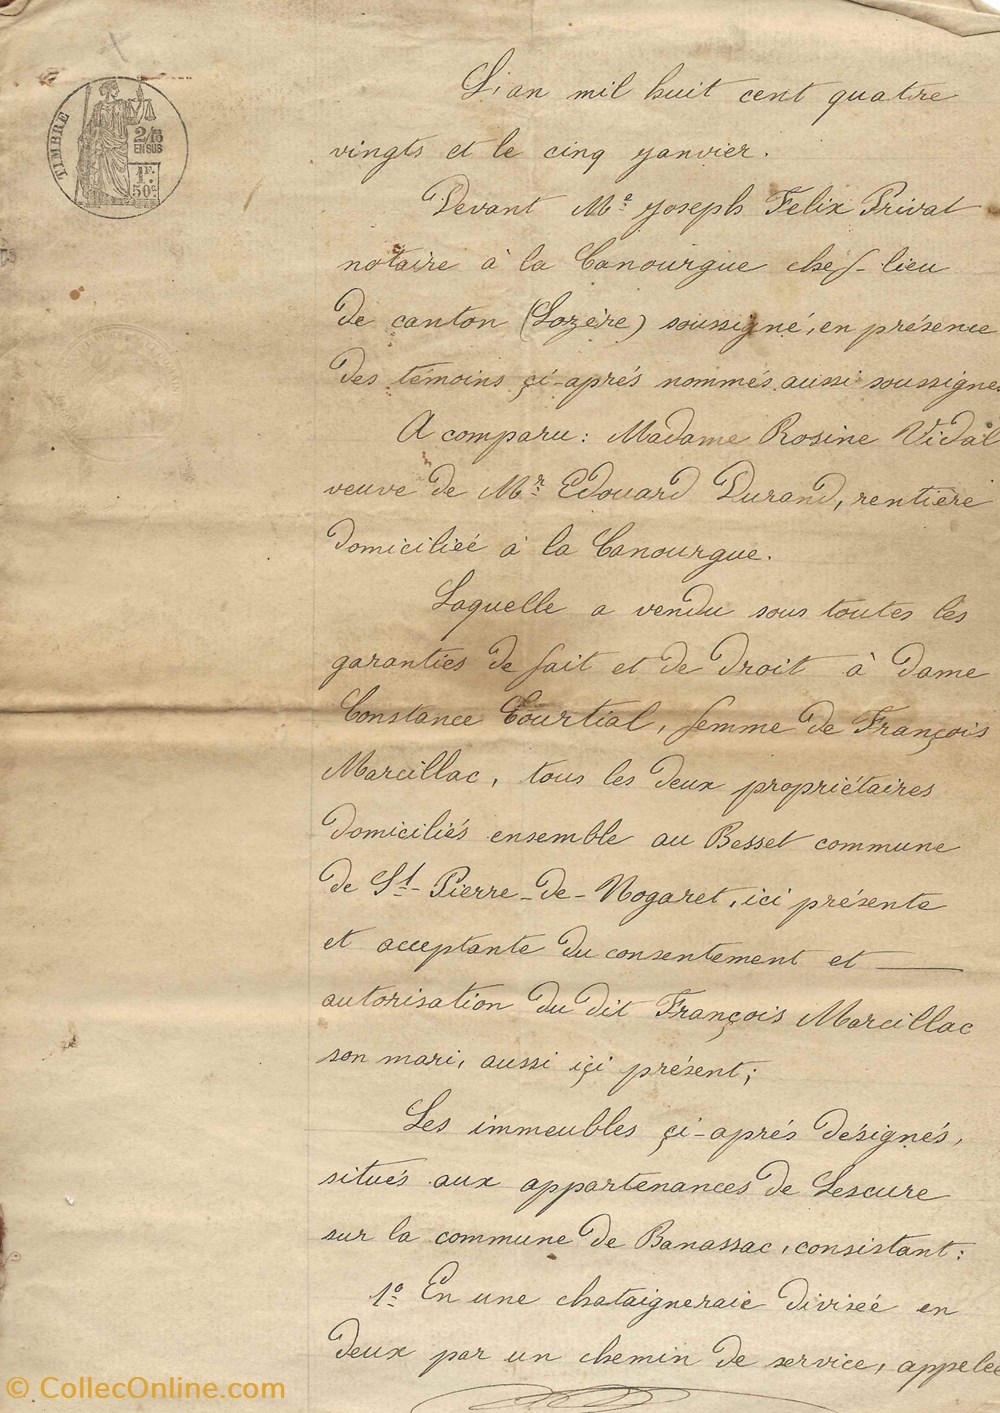 TIMBRE
2/10
EN SUS
1F.
50c
L'an mil huit cent quatre
vingts et le cinq janvier.
Devant Me Joseph Felix Privat
notaire à la Canourgue chef-lieu
de canton (Lozère) soussigné, en présence
des témoins çi-aprés nommés aussi soussignés
A comparu: Madame Rosine Vidal
veuve de Mr. Edouard Durand, rentiere
domiciliéé à la Canourgue.
Laquelle a vendu sous toutes les
garanties de fait et de droit à dame
Constance Courtial, femme de François
Marcillac, tous les deux propriétaires
domiciliés ensemble au Besset commune
de St-Pierre-de-Nogaret, ici présente
et acceptante du consentement et
autorisation du dit François Marcillac
son mari, aussi içi présent;
Les immeubles çi-aprés désignés,
situés aux appartenances de Lescure
sur la commune de Banassac, consistant:
1o En une chataigneraie diviséé en
deux par un chemin de service, appeleé
© CollecOnline.com